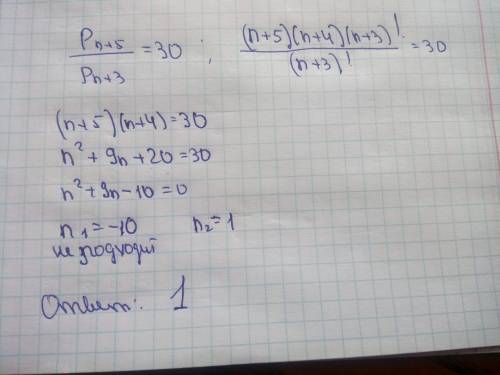 P_{n+5} / P_{n+3} = 30 ; (n+5)(n+4)(n+3)! / (n+3)! = 30
(n+5)(n+4)=30
n² + 9n + 20 = 30
n² + 9n - 10 = 0
n₁ = -10 n₂ = 1
не подходит
Ответ: 1